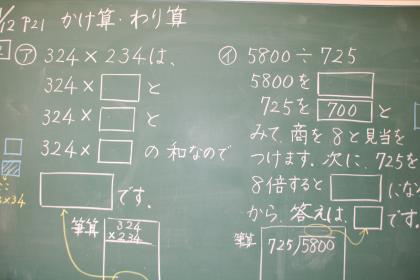 /12 P21 かけ算・わり算
㋐ 324×234は、
324×□と
324×□と
324×□の和なので
□です。
筆算 324
×234
㋑ 5800÷725
5800を□
725を700と
みて、商を8と見当を
つけます。次に、725を
8倍すると□にな
から、答えは、□です。
筆算
725)5800
×34